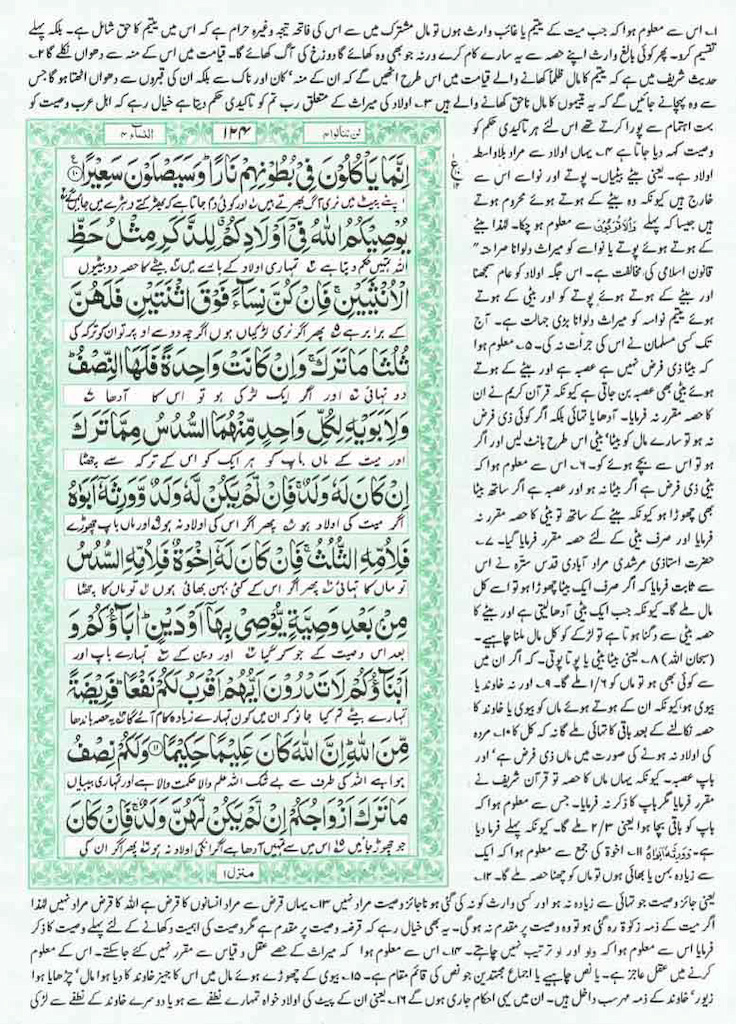 ۱۔ اس سے معلوم ہوا کہ جب میت کے یتیم یا غائب وارث ہوں تو مال مشترک میں سے اس کی فاتحہ تیجہ وغیرہ حرام ہے کہ اس میں یتیم کا حق شامل ہے۔ بلکہ پہلے
تقسیم کرو۔ پھر کوئی بالغ وارث اپنے حصہ سے یہ سارے کام کرے ورنہ جو بھی وہ کھائے گا دوزخ کی آگ کھائے گا۔ قیامت میں اس کے منہ سے دھواں نکلے گا ۲۔
حدیث شریف میں ہے کہ یتیم کا مال ظلماً کھانے والے قیامت میں اس طرح اٹھیں گے کہ ان کے منہ' کان اور ناک سے بلکہ ان کی قبروں سے دھواں اٹھتا ہو گا جس
سے وہ پہچانے جائیں گے کہ یہ یتیموں کا مال ناحق کھانے والے ہیں ۳۔ اولاد کی میراث کے متعلق رب تم کو تاکیدی حکم دیتا ہے خیال رہے کہ اہل عرب وصیت کو
لن تنالوا ۴
۱۲۴
النساء ۴
اِنَّمَا يَاْكُلُوْنَ فِيْ بُطُوْنِهِمْ نَارًا ؕ وَسَيَصْلَوْنَ سَعِيْرًا ۟۱۰
اپنے پیٹ میں نری آگ بھرتے ہیں اور کوئی دم جاتا ہے کہ بھڑکتے دھڑے میں جائیں گے
يُوْصِيْكُمُ اللّٰهُ فِيْۤ اَوْلَادِكُمْ لِلذَّكَرِ مِثْلُ حَظِّ
اللہ تمہیں حکم دیتا ہے تمہاری اولاد کے بارے میں بیٹے کا حصہ دو بیٹیوں
الْاُنْثَيَيْنِ ۚ فَاِنْ كُنَّ نِسَآءً فَوْقَ اثْنَتَيْنِ فَلَهُنَّ
کے برابر ہے پھر اگر نری لڑکیاں ہوں اگرچہ دو سے اوپر تو ان کو ترکہ کی
ثُلُثَا مَا تَرَكَ ۚ وَاِنْ كَانَتْ وَاحِدَةً فَلَهَا النِّصْفُ ؕ
دو تہائی اور اگر ایک لڑکی ہو تو اس کا آدھا
وَلِاَبَوَيْهِ لِكُلِّ وَاحِدٍ مِّنْهُمَا السُّدُسُ مِمَّا تَرَكَ
اور میت کے ماں باپ کو ہر ایک کو اس کے ترکہ سے چھٹا
اِنْ كَانَ لَهٗ وَلَدٌ ۚ فَاِنْ لَّمْ يَكُنْ لَّهٗ وَلَدٌ وَّوَرِثَهٗۤ اَبَوٰهُ
اگر میت کی اولاد ہو پھر اگر اس کی اولاد نہ ہو اور ماں باپ چھوڑے
فَلِاُمِّهِ الثُّلُثُ ۚ فَاِنْ كَانَ لَهٗۤ اِخْوَةٌ فَلِاُمِّهِ السُّدُسُ
تو ماں کا تہائی پھر اگر اس کے کئی بہن بھائی ہوں تو ماں کا چھٹا
مِنْۢ بَعْدِ وَصِيَّةٍ يُّوْصِيْ بِهَاۤ اَوْ دَيْنٍ ؕ اٰبَآؤُكُمْ وَ
بعد اس وصیت کے جو کر گیا اور دین کے تمہارے باپ اور
اَبْنَآؤُكُمْ لَا تَدْرُوْنَ اَيُّهُمْ اَقْرَبُ لَكُمْ نَفْعًا ؕ فَرِيْضَةً
تمہارے بیٹے تم کیا جانو کہ ان میں کون تمہارے زیادہ کام آئے گا یہ حصہ باندھا
مِّنَ اللّٰهِ ؕ اِنَّ اللّٰهَ كَانَ عَلِيْمًا حَكِيْمًا ۝۱۱ وَلَكُمْ نِصْفُ
ہوا ہے اللہ کی طرف سے بے شک اللہ علم والا حکمت والا ہے اور تمہاری بیبیاں
مَا تَرَكَ اَزْوَاجُكُمْ اِنْ لَّمْ يَكُنْ لَّهُنَّ وَلَدٌ ۚ فَاِنْ كَانَ
جو چھوڑ جائیں اس میں سے تمہیں آدھا ہے اگر انکی اولاد نہ ہو پھر اگر ان کی
منزل ۱
بہت اہتمام سے پورا کرتے تھے اس لئے ہر تاکیدی حکم کو
وصیت کہہ دیا جاتا ہے ۴۔ یہاں اولاد سے مراد بلاواسطہ
اولاد ہے۔ یعنی بیٹے بیٹیاں۔ پوتے اور نواسے اس سے
خارج ہیں کیونکہ وہ بیٹے کے ہوتے ہوئے محروم ہوتے
ہیں جیسا کہ پہلے وَالْاَقْرَبُوْنَ سے معلوم ہو چکا۔ لہٰذا بیٹے
کے ہوتے ہوئے پوتے یا نواسے کو میراث دلوانا صراحتہً
قانون اسلامی کی مخالفت ہے۔ اس جگہ اولاد کو عام سمجھنا
اور بیٹے کے ہوتے ہوئے پوتے کو اور بیٹی کے ہوتے
ہوئے یتیم نواسہ کو میراث دلوانا بڑی جہالت ہے۔ آج
تک کسی مسلمان نے اس کی جرأت نہ کی۔ ۵۔ معلوم ہوا
کہ بیٹا ذی فرض نہیں ہے عصبہ ہے اور بیٹے کے ہوتے
ہوئے بیٹی بھی عصبہ بن جاتی ہے کیونکہ قرآن کریم نے ان
کا حصہ مقرر نہ فرمایا۔ آدھا یا تہائی بلکہ اگر کوئی ذی فرض
نہ ہو تو سارے مال کو بیٹا' بیٹی اس طرح بانٹ لیں اور اگر
ہو تو اس سے بچے ہوئے کو۔ ۶۔ اس سے معلوم ہوا کہ
بیٹی ذی فرض ہے اگر بیٹا نہ ہو اور عصبہ ہے اگر ساتھ بیٹا
بھی چھوڑا ہو کیونکہ بیٹے کے ساتھ تو بیٹی کا حصہ مقرر نہ
فرمایا اور صرف بیٹی کے لئے حصہ مقرر فرمایا گیا۔ ۷۔
حضرت استاذی مرشدی مراد آبادی قدس سترہ نے اس
سے ثابت فرمایا کہ اگر صرف ایک بیٹا چھوڑا ہو تو اسے کل
مال ملے گا۔ کیونکہ جب ایک بیٹی آدھا لیتی ہے اور بیٹے کا
حصہ بیٹی سے دگنا ہوتا ہے تو لڑکے کو کل مال ملنا چاہیے۔
(سبحان اللہ) ۸۔ یعنی بیٹا بیٹی یا پوتا پوتی۔ کہ اگر ان میں
سے کوئی بھی ہو تو ماں کو ۱/۶ ملے گا۔ ۹۔ اور نہ خاوند یا
بیوی ہو' کیونکہ ان کے ہوتے ہوئے ماں کو بیوی یا خاوند کا
حصہ نکالنے کے بعد باقی کا تہائی ملے گا نہ کہ کل کا ۱۰۔ مردہ
کی اولاد نہ ہونے کی صورت میں ماں ذی فرض ہے' اور
باپ عصبہ۔ کیونکہ یہاں ماں کا حصہ تو قرآن شریف نے
مقرر فرمایا مگر باپ کا ذکر نہ فرمایا۔ جس سے معلوم ہوا کہ
باپ کو باقی بچا ہوا یعنی ۲/۳ ملے گا۔ کیونکہ پہلے فرما دیا
ہے۔ وَوَرِثَهٗ اَبَوٰهُ ۱۱۔ اخوة کی جمع سے معلوم ہوا کہ ایک
سے زیادہ بہن یا بھائی ہوں تو ماں کو چھٹا حصہ ملے گا۔ ۱۲۔
یعنی جائز وصیت جو تہائی سے زیادہ نہ ہو اور کسی وارث کو نہ کی گئی ہو ناجائز وصیت مراد نہیں ۱۳۔ یہاں قرض سے مراد انسانوں کا قرض ہے اللہ کا قرض مراد نہیں لہٰذا
اگر میت کے ذمہ زکوٰۃ رہ گئی ہو تو وہ وصیت پر مقدم نہ ہو گی۔ یہ بھی خیال رہے کہ قرضہ وصیت پر مقدم ہے مگر وصیت کی اہمیت دکھانے کے لئے پہلے وصیت کا ذکر
فرمایا اس سے معلوم ہوا کہ واو اور او ترتیب نہیں چاہتے۔ ۱۴۔ اس سے معلوم ہوا کہ میراث کے حصے عقل و قیاس سے مقرر نہیں کئے جا سکتے۔ اس کے معلوم
کرنے میں عقل عاجز ہے۔ یا نص چاہیے یا اجماع مجتہدین جو نص کی قائم مقام ہے۔ ۱۵۔ بیوی کے چھوڑے ہوئے مال میں اس کا جہیز خاوند کا دیا ہوا مال' چڑھایا ہوا
زیور' خاوند کے ذمہ مہر سب داخل ہیں۔ ان میں یہی احکام جاری ہوں گے ۱۶۔ یعنی ان کے پیٹ کی اولاد خواہ تمہارے نطفے سے ہو یا دوسرے خاوند کے نطفے سے لڑکی